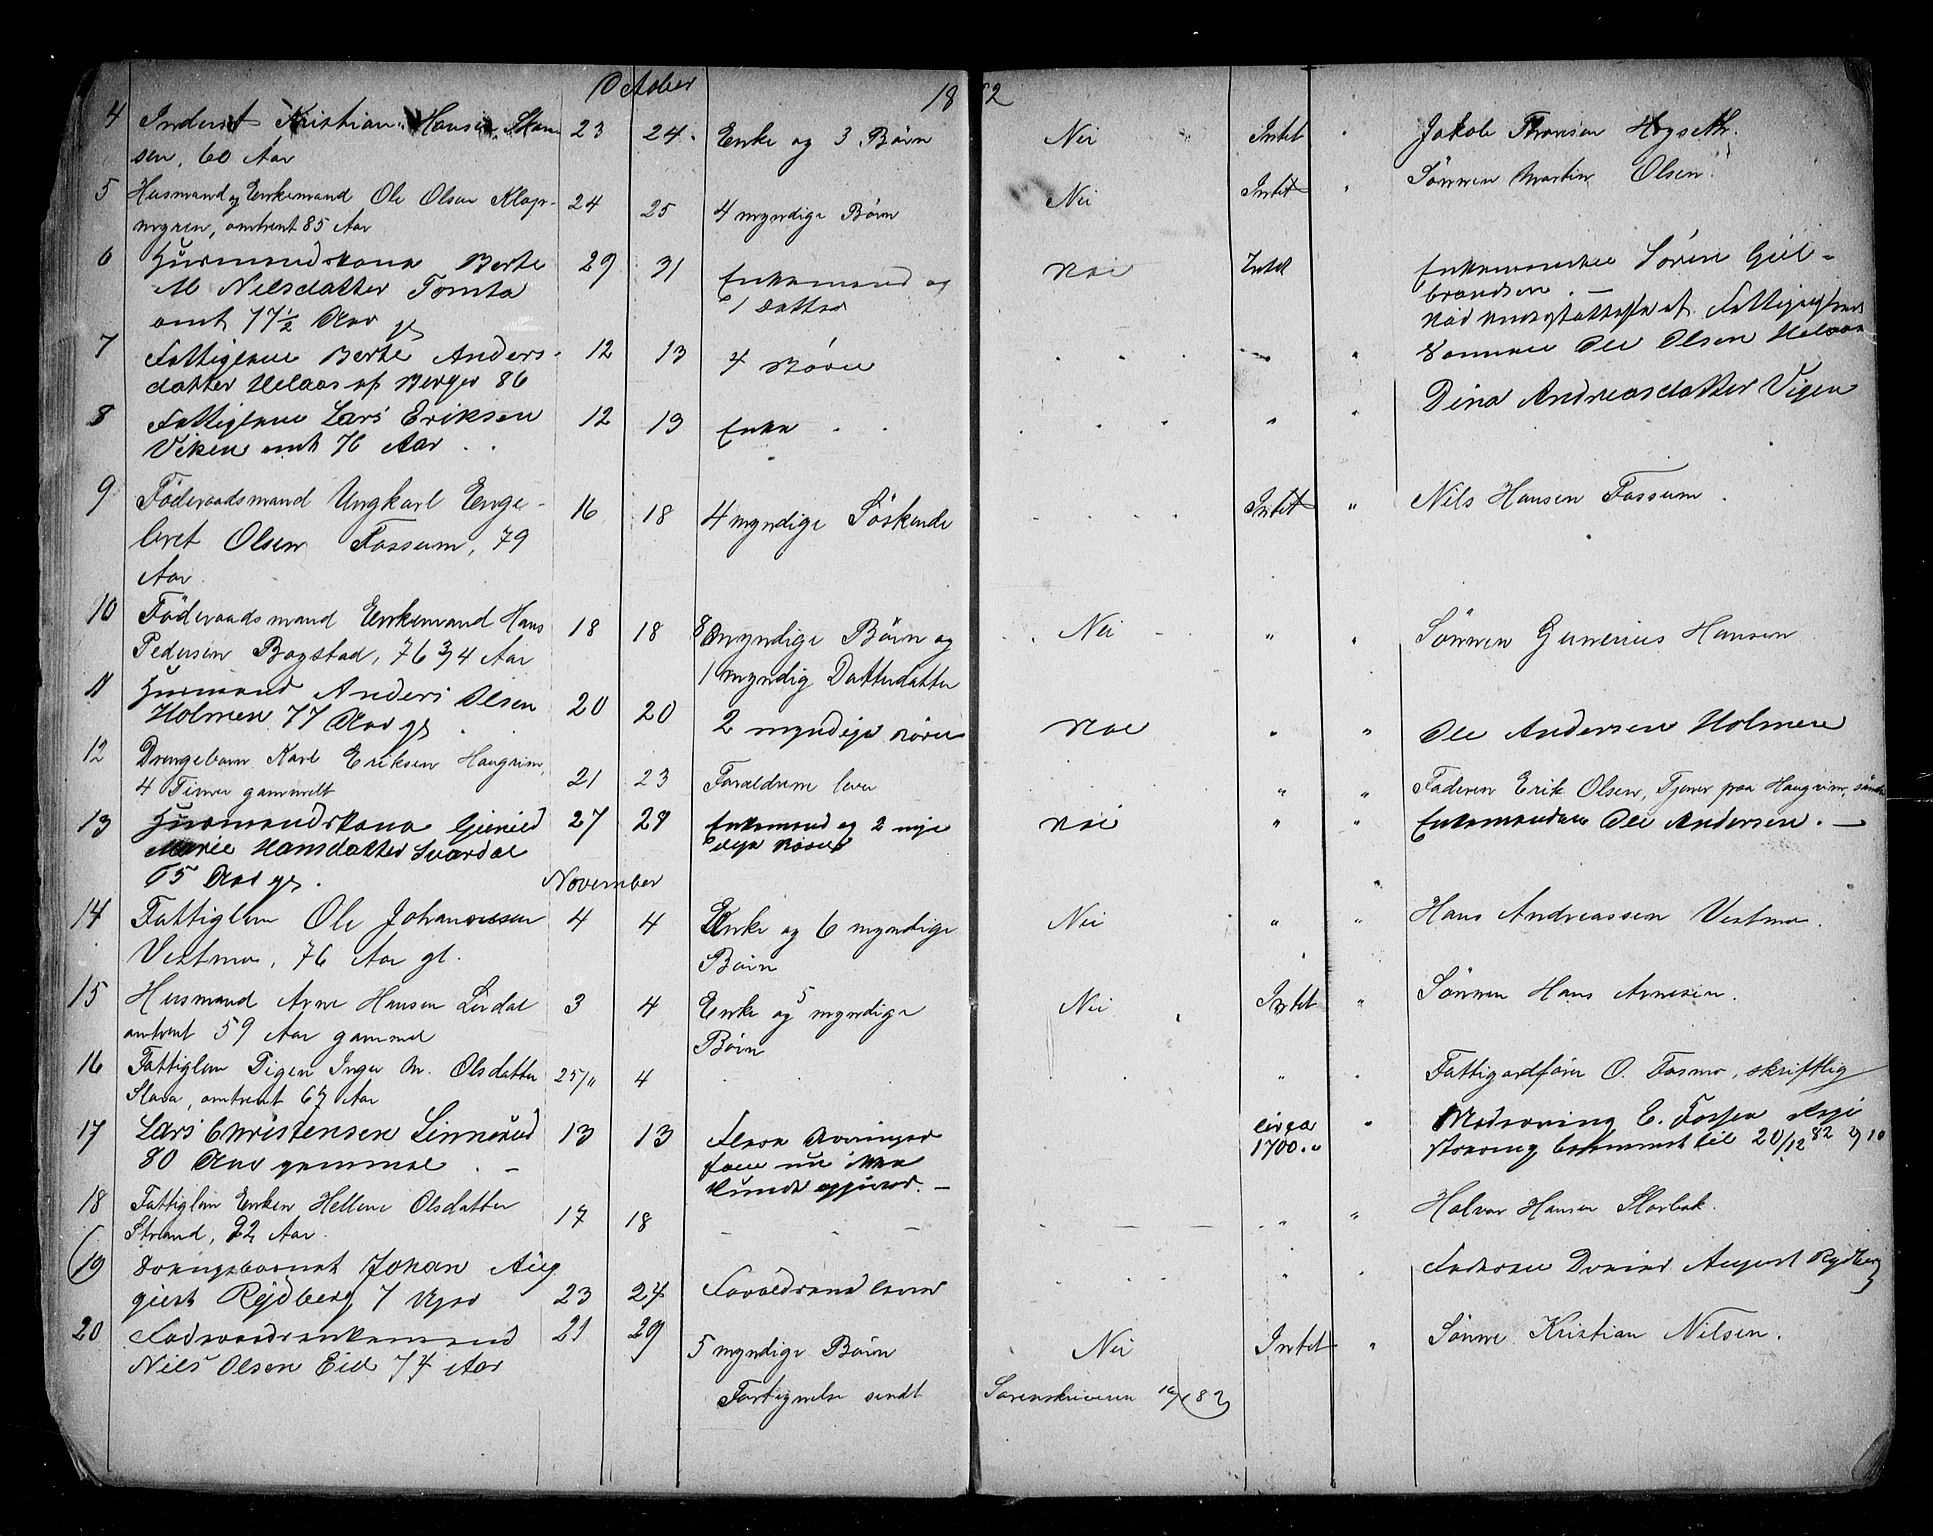 October 1882
4 Inderst Kristian Hansen 23 24 Enke og 3 Børn Nei Intet " Jakob Hogseth.
sen, 60 Aar
5 Husmand og Enkemand Ole Olsen Klop- 24 25 4 myndige Børn Nei Intet " Sønnen Martin Olsen.
myren, omtrent 85 Aar
6 Husmandskone Berte 29 31 Enkemand og Nei Intet Enkemanden Søren Gul-
M Nilsdatter Tomta 1 Datter brandsen.
omt 77½ Aar gl
7 Fattiglem Berte Anders- 12 13 4 Børn " " Sønnen Ole Olsen Helaas
datter Helaas af Berger 86
8 Fattiglem Lars Eriksen 12 13 Enke " " Dina Andreasdatter Vigen
Viken omt 76 Aar
9 Föderaadsmand Ungkarl Enge- 16 18 4 myndige Søskende Intet " Nils Hansen Fossum.
bret Olsen Fossum, 79
Aar.
10 Föderaadsmand Enkemand Hans 18 18 8 myndige Børn og Nei " " Sønnen Gunerius Hansen
Pedersen Bogstad, 76 3/4 Aar 1 myndig Datterdatter
11 Husmand Anders Olsen 20 20 2 myndige Børn Nei " " Ole Andersen Holmen
Holmen 77 Aar gl
12 Drengebarn Karl Eriksen Haugrim, 21 23 Forældrene lever " " Faderen Erik Olsen, Tjener paa Haugrim, søndre
4 Timer gammelt
13 Husmandskone Gunild 27 29 Enkemand og 2 myn Nei " " Enkemanden Ole Andersen.
Marie Hansdatter Svardal dige Børn
65 Aar gl.
November
14 Fattiglem Ole Johannesen 4 4 Enke og 6 myndige Nei " " Hans Andreassen Vestmo.
Vestmo, 76 Aar gl. Børn
15 Husmand Arne Hansen Lindal 3 4 Enke og 5 myndige Nei Intet " Sønnen Hans Arnesen.
omtrent 59 Aar gammel Børn
16 Fattiglem Pigen Inger M. Olsdatter 25/" 4 " Fattigordfører O. Fosmo, skriftlig
Slaaa, omtrent 67 Aar
17 Lars Christensen Linnerud 13 13 Flere Arvinger circa " E. Fossen
80 Aar gammel som nu ikke 1700." bestemt til 20/12 82
kunde opgives.
18 Fattiglem Enken Hellene Olsdatter 17 18 " " Halvor Hansen Storbak.
Strand, 82 Aar.
19 Drengebarnet Johan Aug 23 24 Forældrene lever " Faderen August Rydberg
gust Rydberg 7 Uger
20 Föderaadsenkemand 21 29 5 myndige Børn Nei Intet " Sønne Kristian Nilsen.
Niels Olsen Eid 74 Aar
Fortegnelse sendt Sorenskriveren